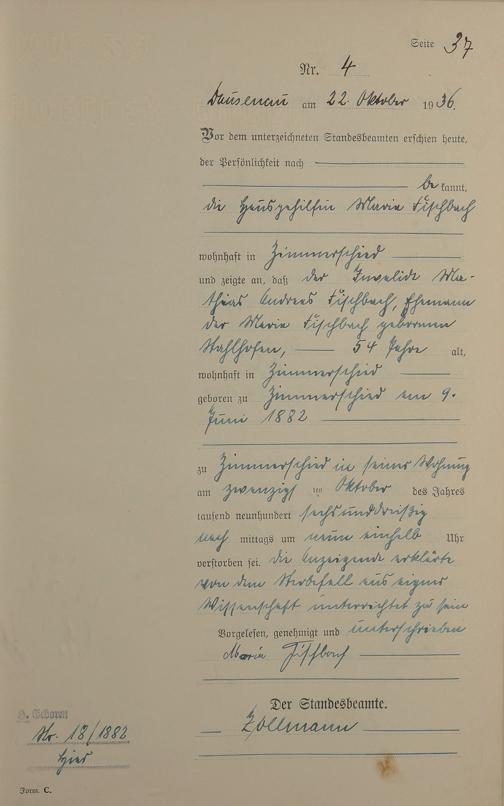 Seite 37
Nr. 4
Dausenau am 22. Oktober 1936.
Vor dem unterzeichneten Standesbeamten erschien heute,
der Persönlichkeit nach
bekannt,
die Hausgehilfin Maria Fischbach
wohnhaft in Zimmerschied
und zeigte an, daß der Invalide Ma-
thias Andreas Fischbach, Ehemann
der Maria Fischbach geborenen
Stahlhofen, 54 Jahre alt,
wohnhaft in Zimmerschied
geboren zu Zimmerschied am 9.
Juni 1882
zu Zimmerschied in seiner Wohnung
am zwanzigsten Oktober des Jahres
tausend neunhundert sechsunddreißig
nach mittags um neun einhalb Uhr
verstorben sei. die Anzeigende erklärte
von dem Sterbefall aus eigner
Wissenschaft unterrichtet zu sein
Vorgelesen, genehmigt und unterschrieben
Maria Fischbach
Der Standesbeamte.
Zollmann
Nr. 18/1882
hier
Form. C.